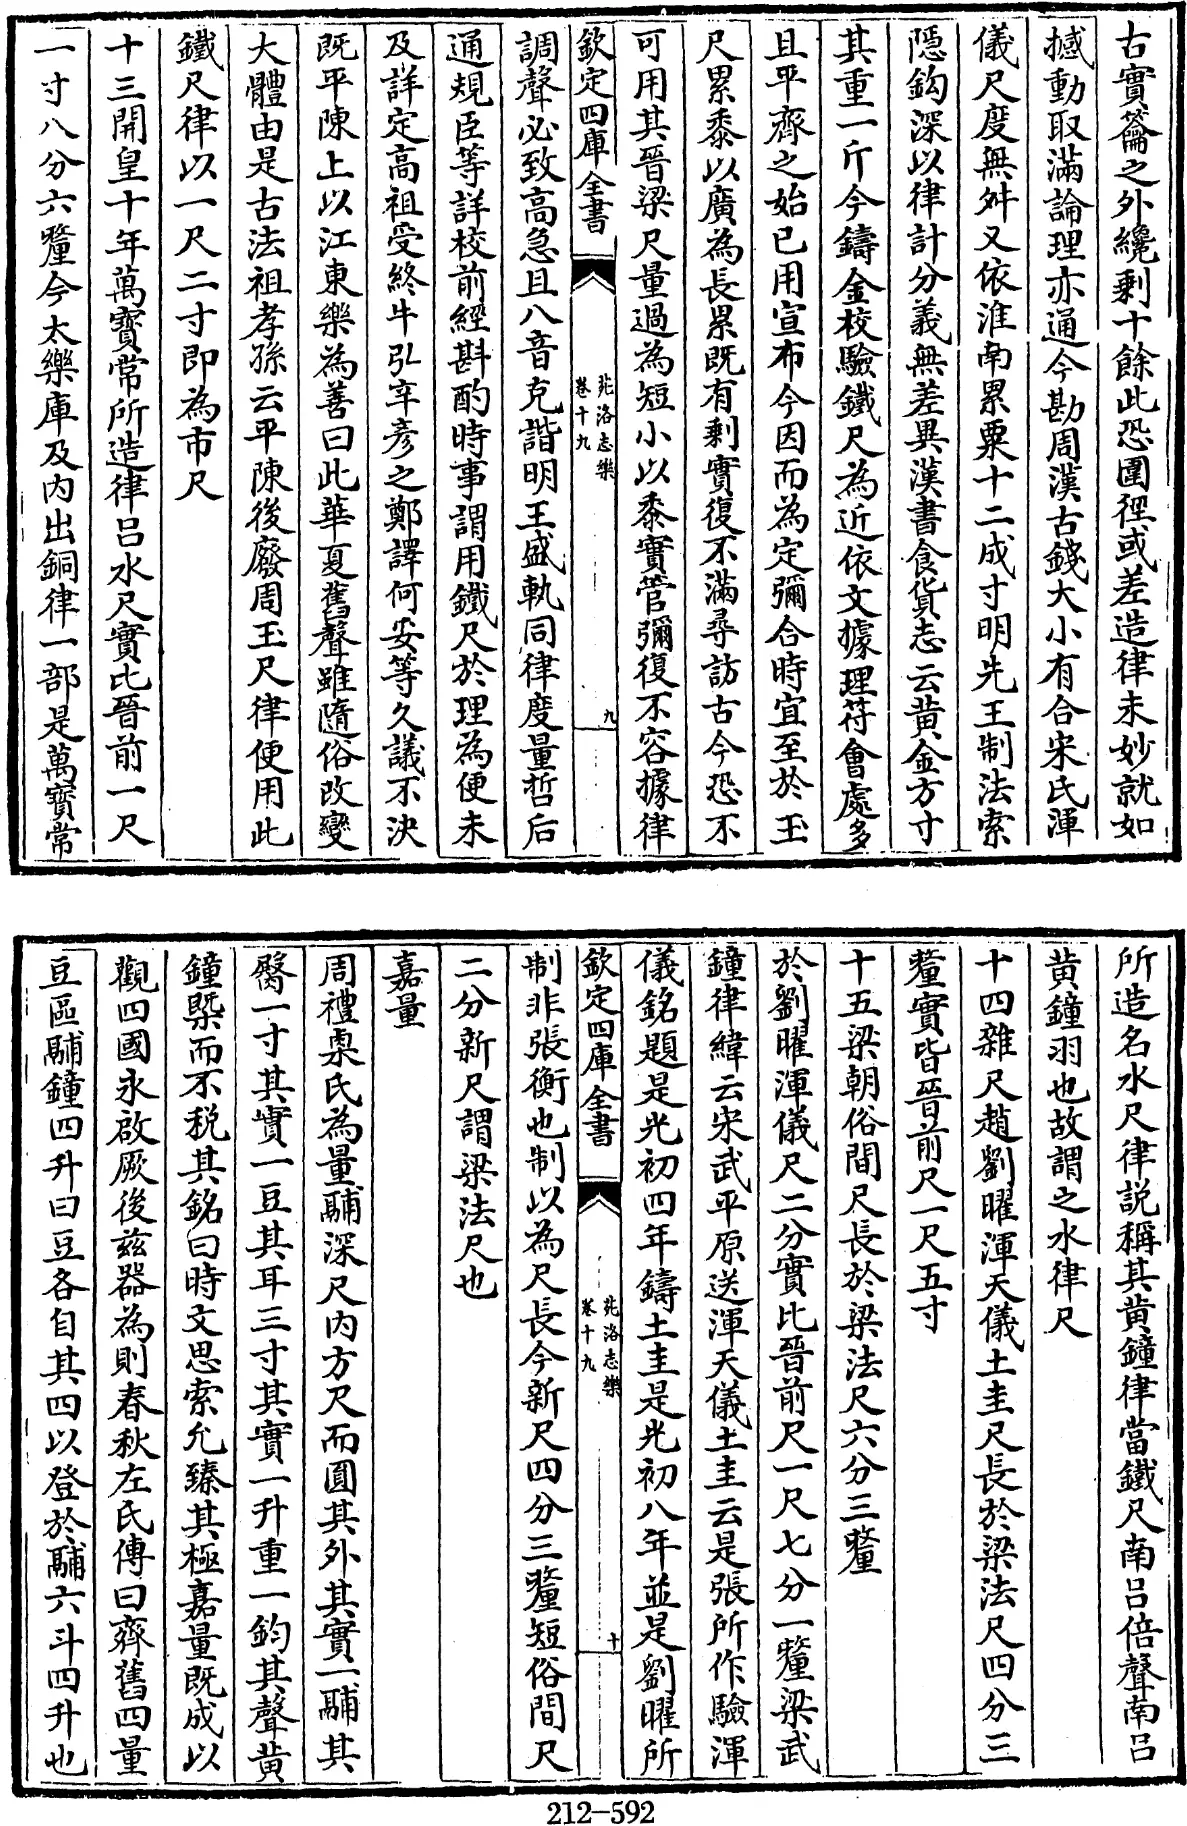 古實籥之外纔剩十餘此恐圍徑或差造律未妙就如
撼動取滿論理亦通今勘周漢古錢大小有合宋氏渾
儀尺度無舛又依淮南累粟十二成寸明先王制法索
隱鈎深以律計分義無差異漢書食貨志云黄金方寸
其重一斤今鑄金校驗鐵尺為近依文據理符會處多
且平齊之始已用宣布今因而為定彌合時宜至於玉
尺累黍以廣為長累既有剩實復不滿尋訪古今恐不
可用其晉梁尺量過為短小以黍實管彌復不容據律
欽定四庫全書
苑洛志樂
卷十九
九
調聲必致高急且八音克諧明王盛軌同律度量哲后
通規臣等詳校前經斟酌時事謂用鐵尺於理為便未
及詳定高祖受終牛弘辛彦之鄭譯何妥等久議不決
既平陳上以江東樂為善曰此華夏舊聲雖隨俗改變
大體由是古法祖孝孫云平陳後廢周玉尺律便用此
鐵尺律以一尺二寸即為市尺
十三開皇十年萬寳常所造律吕水尺實比晉前一尺
一寸八分六釐今太樂庫及内出銅律一部是萬寳常
所造名水尺律説稱其黄鐘律當鐵尺南吕倍聲南吕
黄鐘羽也故謂之水律尺
十四雜尺趙劉曜渾天儀土圭尺長於梁法尺四分三
釐實皆晉前尺一尺五寸
十五梁朝俗間尺長於梁法尺六分三釐
於劉曜渾儀尺二分實比晉前尺一尺七分一釐梁武
鐘律緯云宋武平原送渾天儀土圭云是張所作驗渾
儀銘題是光初四年鑄土圭是光初八年並是劉曜所
欽定四庫全書
苑洛志樂
卷十九
十
制非張衡也制以為尺長今新尺四分三釐短俗間尺
二分新尺謂梁法尺也
嘉量
周禮㮚氏為量鬴深尺内方尺而圓其外其實一鬴其
臀一寸其實一豆其耳三寸其實一升重一鈞其聲黄
鐘槩而不税其銘曰時文思索允臻其極嘉量既成以
觀四國永啟厥後兹器為則春秋左氏傳曰齊舊四量
豆區鬴鐘四升曰豆各自其四以登於鬴六斗四升也
212-592